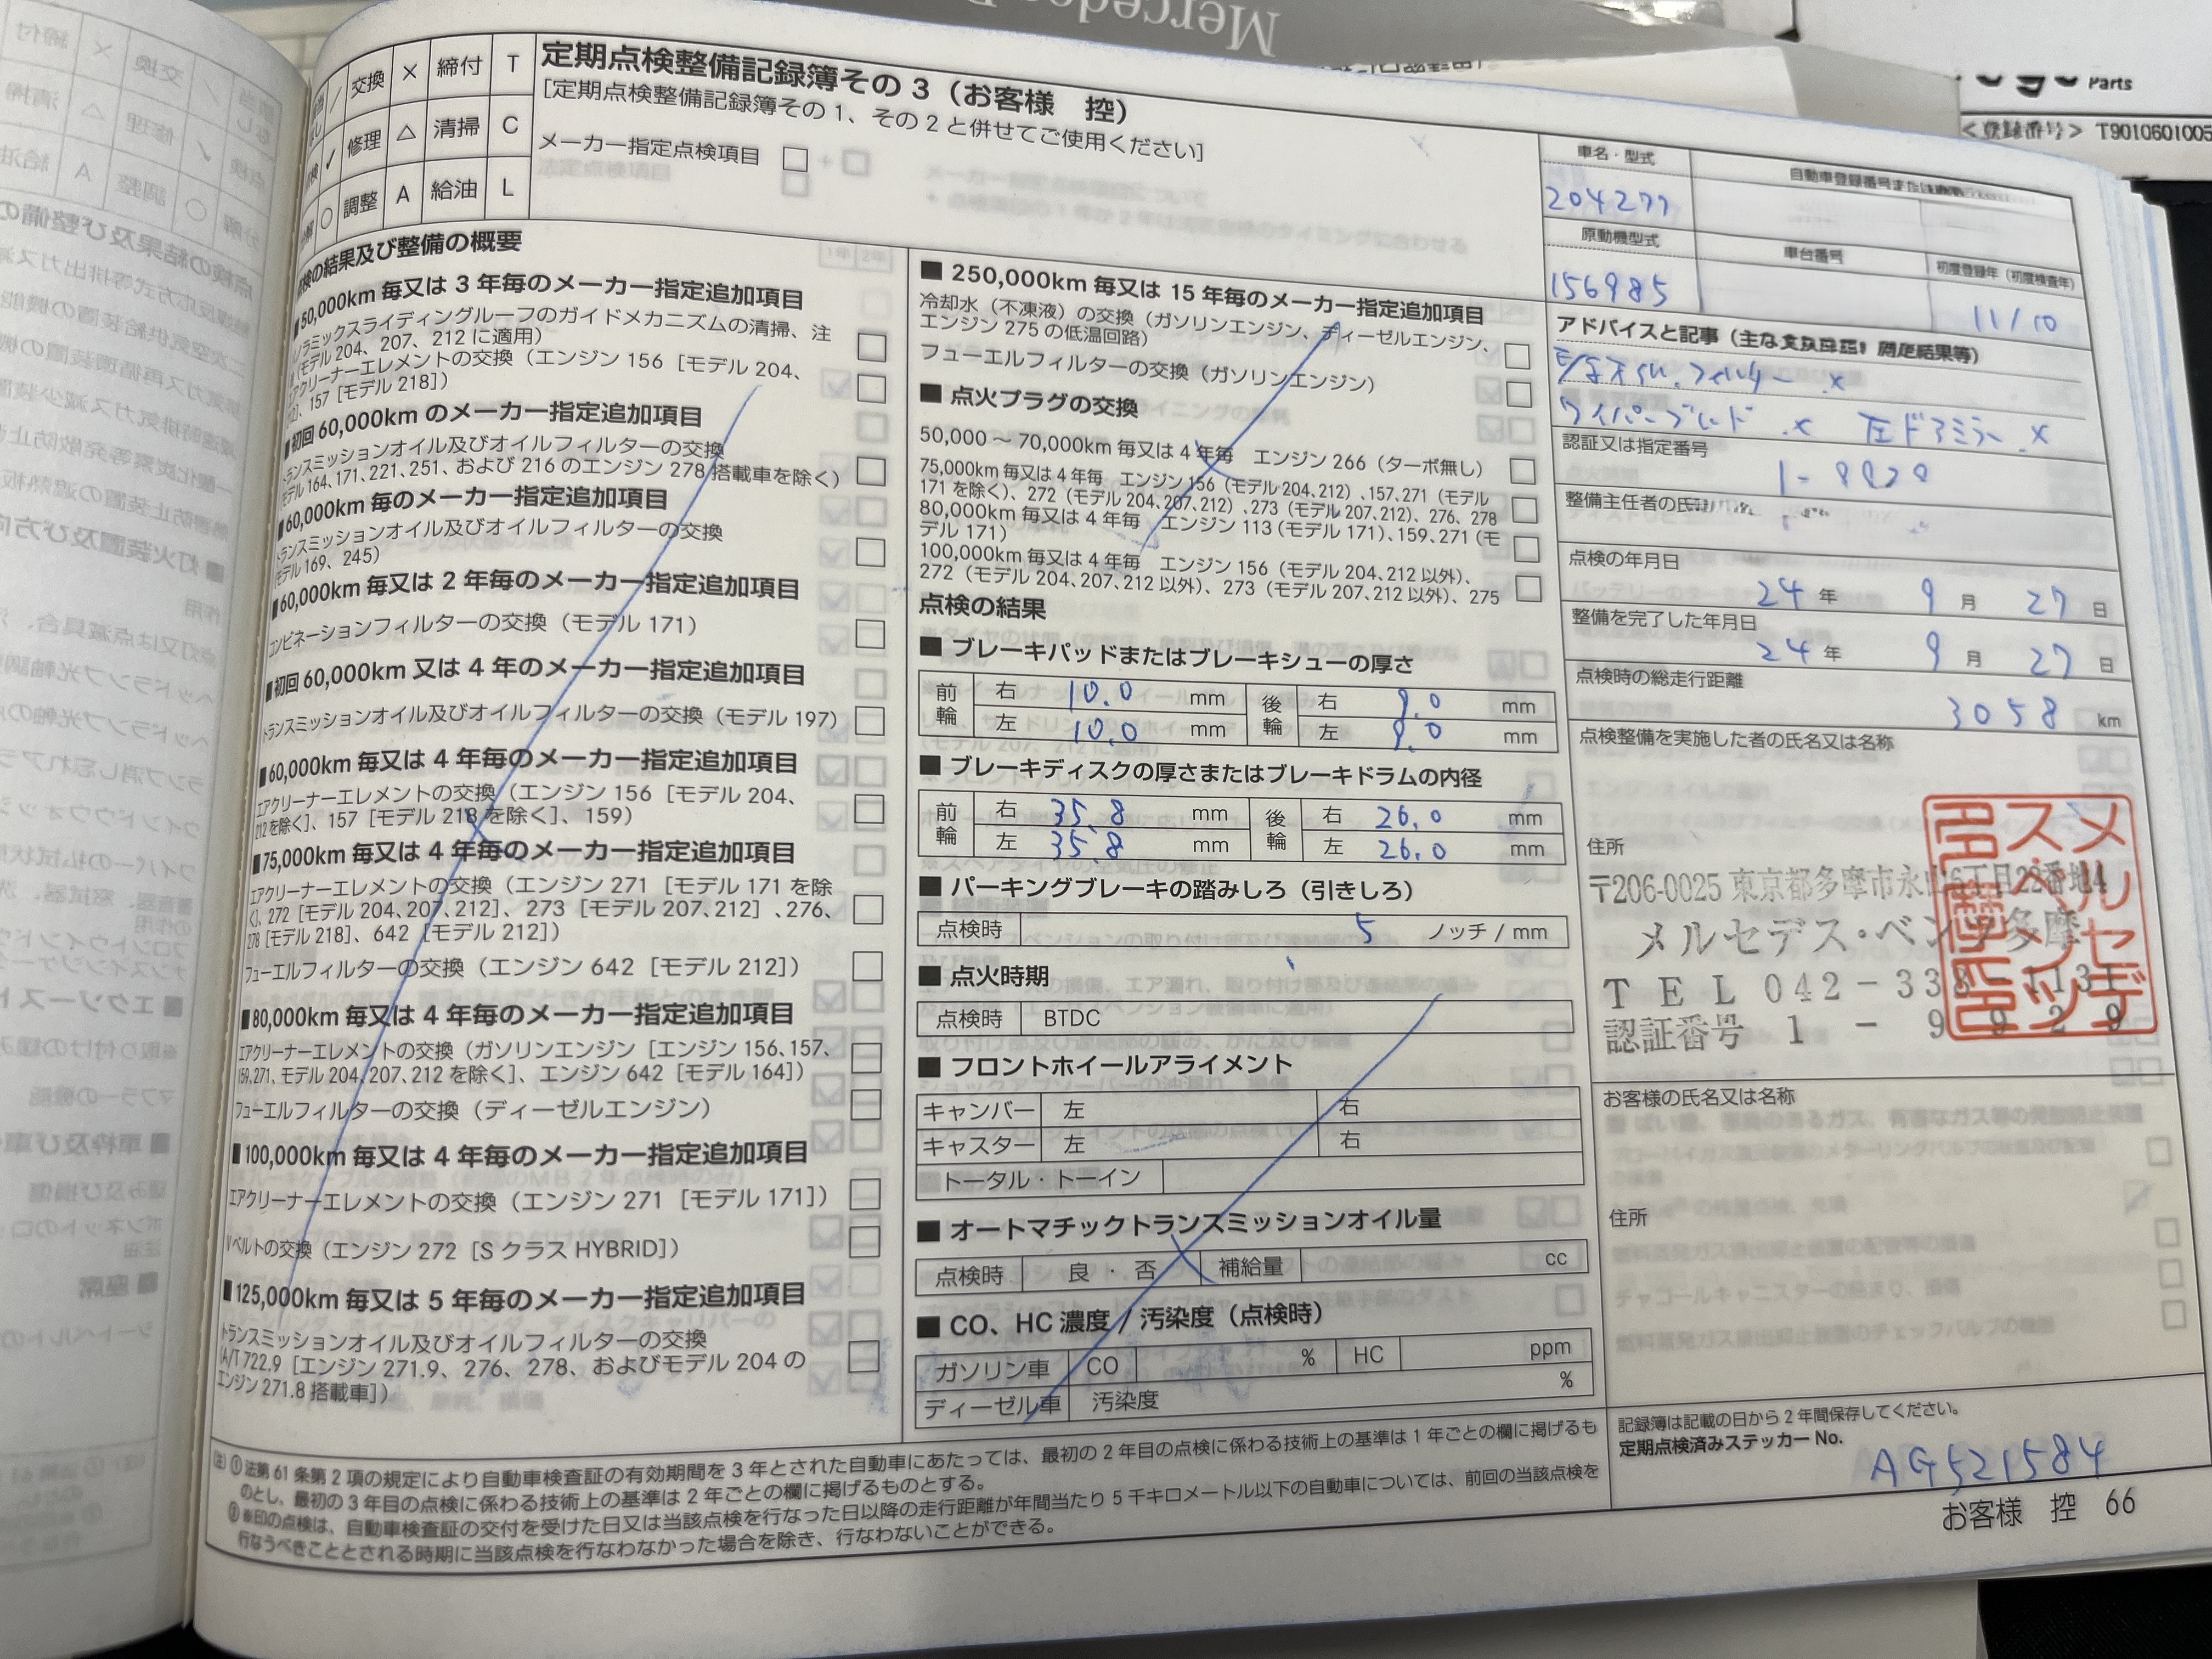 Mercedes
Parts
<登録番号> T9010601005
交換 × 締付 T
修理 △ 清掃 C
調整 A 給油 L
定期点検整備記録簿その 3(お客様 控)
[定期点検整備記録簿その 1、その 2 と併せてご使用ください]
メーカー指定点検項目
点検の結果及び整備の概要
■50,000km 毎又は 3 年毎のメーカー指定追加項目
パノラミックスライディングルーフのガイドメカニズムの清掃、注
(モデル 204、207、212 に適用)
エアクリーナーエレメントの交換(エンジン 156 [モデル 204、
157 [モデル 218])
■初回 60,000km のメーカー指定追加項目
トランスミッションオイル及びオイルフィルターの交換
モデル 164、171、221、251、および 216 のエンジン 278 搭載車を除く)
■60,000km 毎のメーカー指定追加項目
トランスミッションオイル及びオイルフィルターの交換
モデル 169、245)
■60,000km 毎又は 2 年毎のメーカー指定追加項目
コンビネーションフィルターの交換(モデル 171)
■初回 60,000km 又は 4 年のメーカー指定追加項目
トランスミッションオイル及びオイルフィルターの交換(モデル 197)
■60,000km 毎又は 4 年毎のメーカー指定追加項目
エアクリーナーエレメントの交換(エンジン 156 [モデル 204、
212 を除く]、157 [モデル 218 を除く]、159)
■75,000km 毎又は 4 年毎のメーカー指定追加項目
エアクリーナーエレメントの交換(エンジン 271 [モデル 171 を除
く]、272 [モデル 204、207、212]、273 [モデル 207、212]、276、
278 [モデル 218]、642 [モデル 212])
フューエルフィルターの交換(エンジン 642 [モデル 212])
■80,000km 毎又は 4 年毎のメーカー指定追加項目
エアクリーナーエレメントの交換(ガソリンエンジン [エンジン 156、157、
159、271、モデル 204、207、212 を除く]、エンジン 642 [モデル 164])
フューエルフィルターの交換(ディーゼルエンジン)
■100,000km 毎又は 4 年毎のメーカー指定追加項目
エアクリーナーエレメントの交換(エンジン 271 [モデル 171])
Vベルトの交換(エンジン 272 [S クラス HYBRID])
■125,000km 毎又は 5 年毎のメーカー指定追加項目
トランスミッションオイル及びオイルフィルターの交換
(A/T 722.9 [エンジン 271.9、276、278、およびモデル 204 の
エンジン 271.8 搭載車])
■ 250,000km 毎又は 15 年毎のメーカー指定追加項目
冷却水(不凍液)の交換(ガソリンエンジン、ディーゼルエンジン、
エンジン 275 の低温回路)
フューエルフィルターの交換(ガソリンエンジン)
■ 点火プラグの交換
50,000 ~ 70,000km 毎又は 4 年毎 エンジン 266(ターボ無し)
75,000km 毎又は 4 年毎 エンジン 156(モデル 204、212)、157、271(モデル
171 を除く)、272(モデル 204、207、212)、273(モデル 207、212)、276、278
80,000km 毎又は 4 年毎 エンジン 113(モデル 171)、159、271(モ
デル 171)
100,000km 毎又は 4 年毎 エンジン 156(モデル 204、212 以外)、
272(モデル 204、207、212 以外)、273(モデル 207、212 以外)、275
点検の結果
■ ブレーキパッドまたはブレーキシューの厚さ
前輪 右 10.0 mm 後輪 右 9.0 mm
左 10.0 mm 左 9.0 mm
■ ブレーキディスクの厚さまたはブレーキドラムの内径
前輪 右 35.8 mm 後輪 右 26.0 mm
左 35.8 mm 左 26.0 mm
■ パーキングブレーキの踏みしろ(引きしろ)
点検時 5 ノッチ / mm
■ 点火時期
点検時 BTDC
■ フロントホイールアライメント
キャンバー 左 右
キャスター 左 右
トータル・トーイン
■ オートマチックトランスミッションオイル量
点検時 良 ・ 否 補給量 cc
■ CO、HC 濃度 / 汚染度(点検時)
ガソリン車 CO % HC ppm
ディーゼル車 汚染度 %
車名・型式
204277
原動機型式 車台番号 初度登録年(初度検査年)
156985 11/10
アドバイスと記事
フィルター ×
ワイパーブレード × 左ドアミラー ×
認証又は指定番号
1-9929
整備主任者の氏
点検の年月日
24 年 9 月 27 日
整備を完了した年月日
24 年 9 月 27 日
点検時の総走行距離
3058 km
点検整備を実施した者の氏名又は名称
住所
〒206-0025 東京都多摩市永山6丁目22番地4
メルセデス・ベンツ多摩
メルセデス・ベンツ多摩
TEL 042-338-1131
認証番号 1-9929
お客様の氏名又は名称
住所
記録簿は記載の日から 2 年間保存してください。
定期点検済みステッカー No.
AG521584
(注)① 法第 61 条第 2 項の規定により自動車検査証の有効期間を 3 年とされた自動車にあたっては、最初の 2 年目の点検に係わる技術上の基準は 1 年ごとの欄に掲げるも
のとし、最初の 3 年目の点検に係わる技術上の基準は 2 年ごとの欄に掲げるものとする。
② ※印の点検は、自動車検査証の交付を受けた日又は当該点検を行なった日以降の走行距離が年間当たり 5 千キロメートル以下の自動車については、前回の当該点検を
行なうべきこととされる時期に当該点検を行なわなかった場合を除き、行なわないことができる。
お客様 控 66